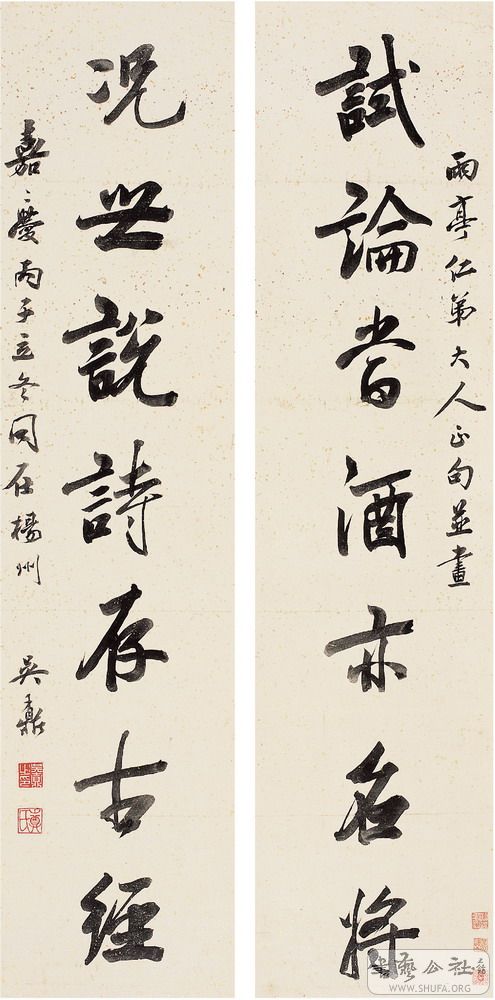 雨亭仁弟大人正句並書
試論嘗酒亦名將
況世說詩存古經
嘉慶丙子立冬同在楊州
吳鼒
書藝公社
WWW.SHUFA.ORG